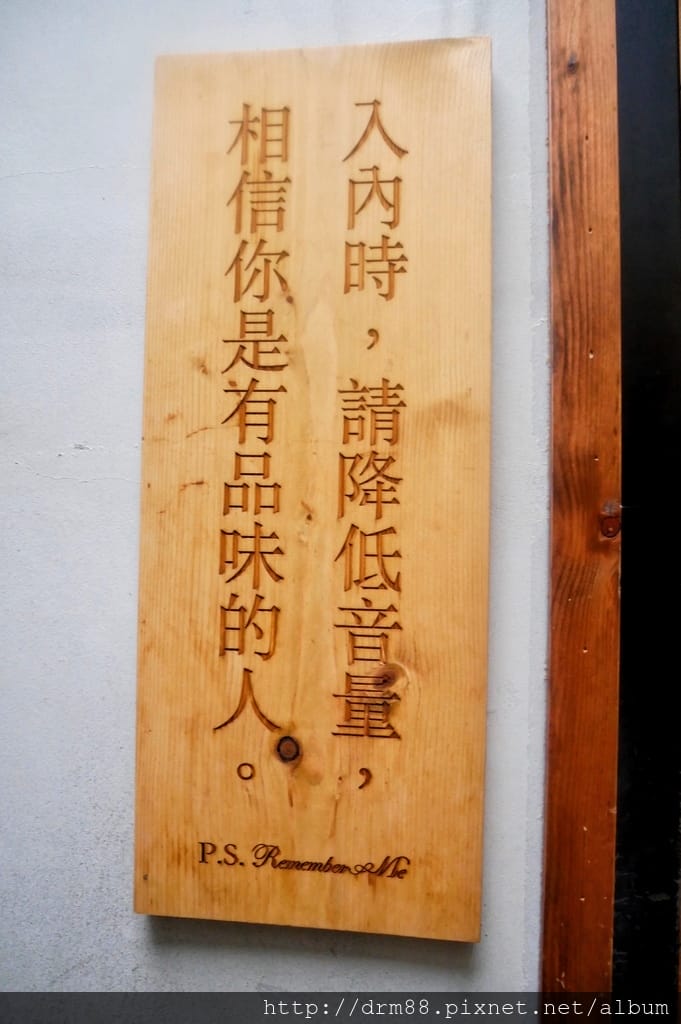 入內時，請降低音量，
相信你是有品味的人。
P.S. Remember Me
http://drm88.pixnet.net/album